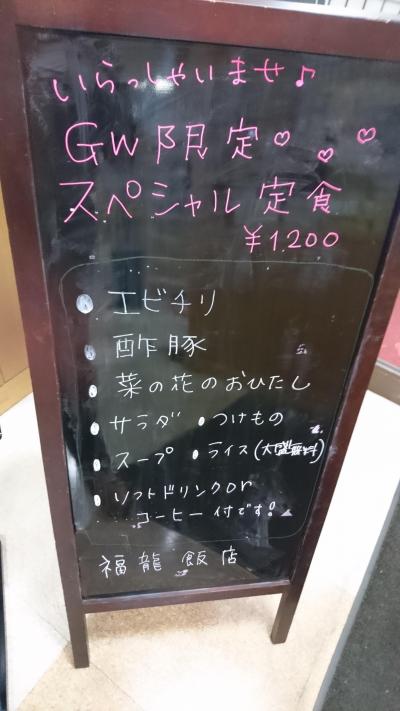 いらっしゃいませ♪
GW限定♡♡♡
スペシャル定食
¥1200
・エビチリ
・酢豚
・菜の花のおひたし
・サラダ ・つけもの
・スープ ・ライス(大盛無料)
・ソフトドリンクor
コーヒー付です!
福龍飯店